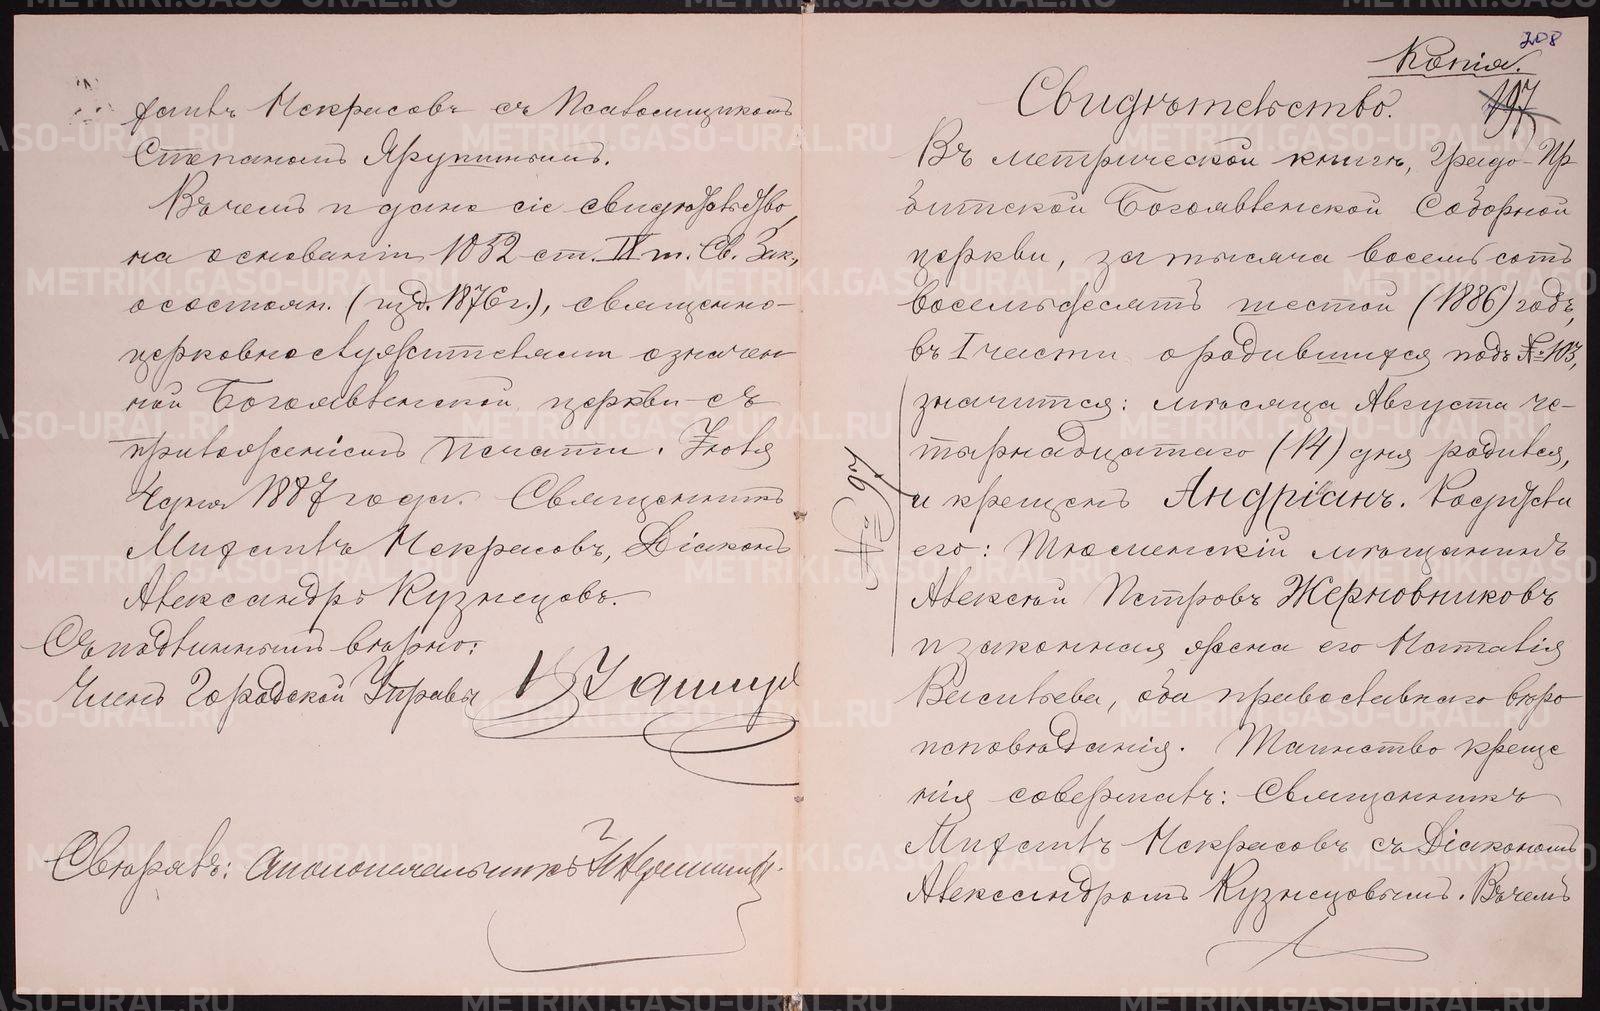 фаилъ Некрасовъ съ Псаломщикомъ
Степаномъ Ярутинымъ.
Въ чемъ и дано сіе свидѣтельство,
на основаніи 1052 ст. IX т. Св. Зак.,
о состоян. (изд. 1876 г.), священно-
церковнослужителями означен
ной Богоявленской церкви съ
приложеніемъ печати. Іюля
1887 года. Священникъ
Мифаилъ Некрасовъ, Діаконъ
Александръ Кузнецовъ.
Съ подлиннымъ вѣрно:
Членъ Городской Управы
Свѣрялъ:
208
Копія.
197
Свидѣтельство.
Въ метрической книгѣ, Градо-Ир
битской Богоявленской Соборной
церкви, за тысяча восемьсотъ
восемьдесятъ шестой (1886) годъ,
въ I части о родившихся подъ № 103,
значится: мѣсяца Августа че-
тырнадцатаго (14) дня родился,
и крещенъ Андріанъ. Родители
его: Тюменскій мѣщанинъ
Алексѣй Петровъ Жерновниковъ
и законная жена его Наталія
Васильева, оба православнаго вѣро
исповѣданія. Таинство креще
нія совершалъ: Священникъ
Мифаилъ Некрасовъ съ Діакономъ
Александромъ Кузнецовымъ. Въ чемъ
METRIKI.GASO-URAL.RU